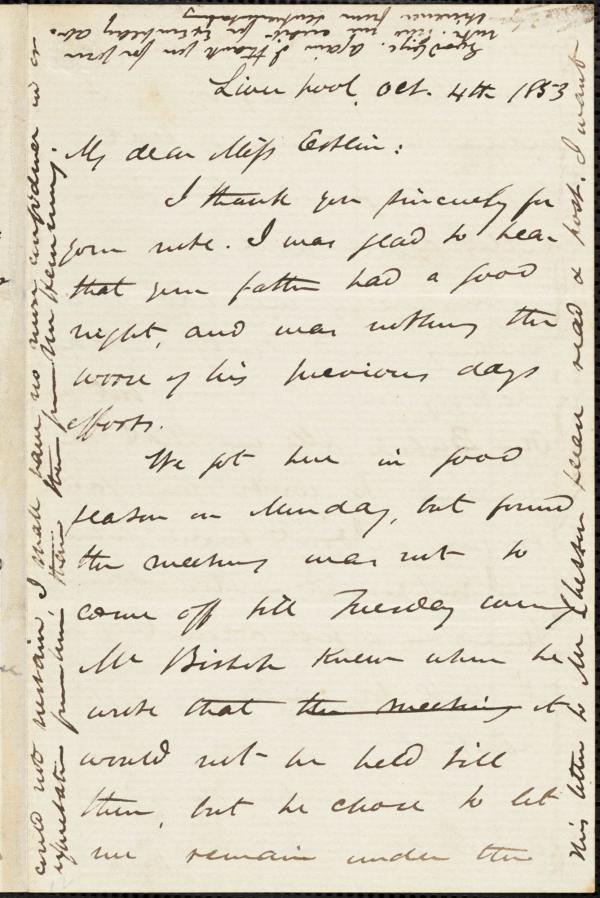 Liverpool, Oct. 4th 1853
My dear Miss Estlin:
I thank you sincerely for
your note. I was glad to hear
that your father had a good
night, and was nothing the
worse of his previous days
efforts.
We got here in good
season on Monday, but found
the meeting was not to
come off till Tuesday evening
Mr Bishop knew when he
wrote that the meeting it
would not be held till
then, but he chose to let
me remain under the
could not restrain, I shall have no more confidence in or
expectation from him than from
this letter to Mr Chesson please read & post. I want
Good bye. Again I thank you for your
note.